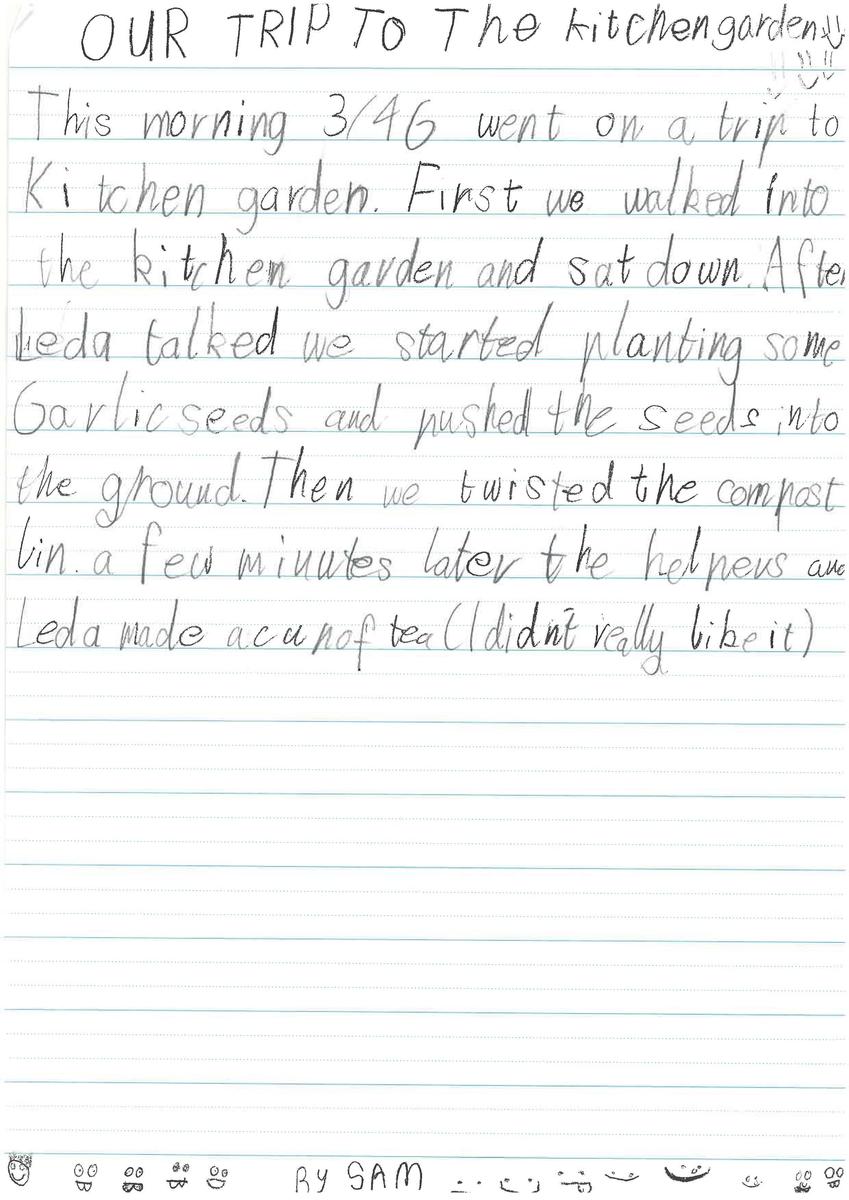 OUR TRIP TO The kitchen garden
This morning 3/4G went on a trip to
Kitchen garden. First we walked into
the kitchen garden and sat down. After
Leda talked we started planting some
Garlic seeds and pushed the seeds into
the ground. Then we twisted the compost
bin. a few minutes later the helpers and
Leda made a cup of tea (I didn't really like it)
BY SAM